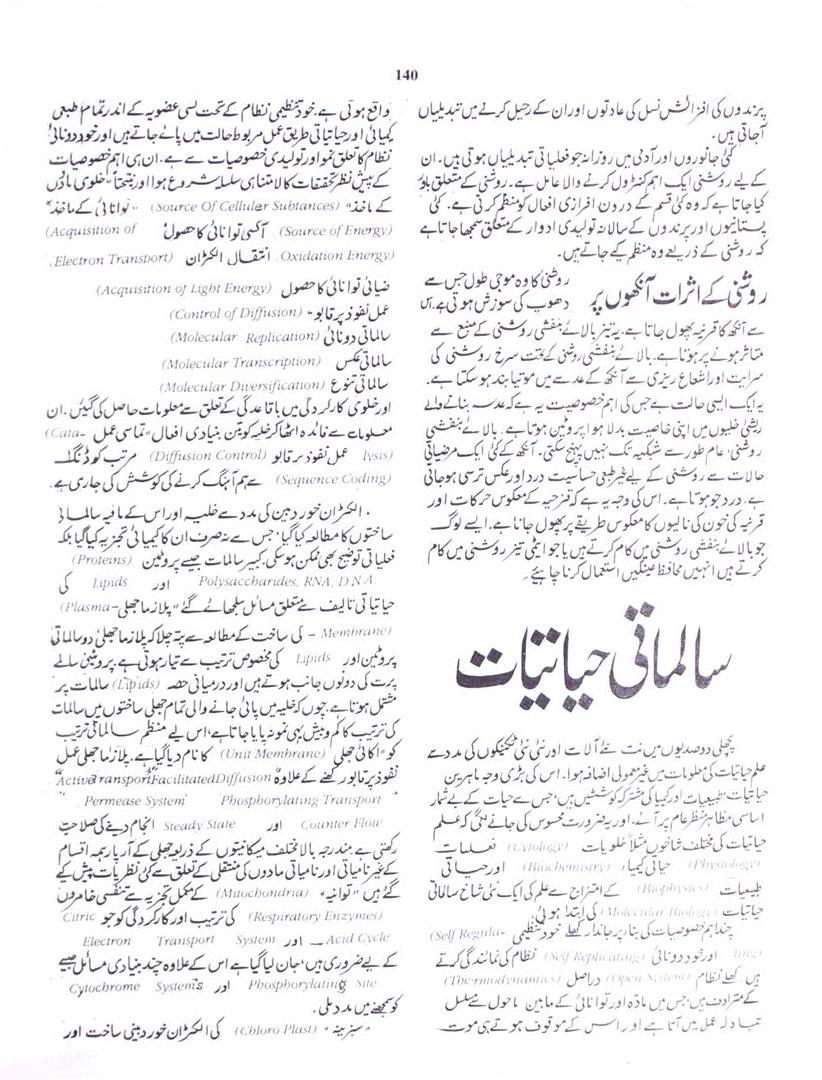 140
پرندوں کی افزائش نسل کی عادتوں اور ان کے رحیل کرنے میں تبدیلیاں
آجاتی ہیں۔
کئی جانوروں اور آدمی میں روزانہ جو فعلیاتی تبدیلیاں ہوتی ہیں۔ ان
کے لیے روشنی ایک اہم کنٹرول کرنے والا عامل ہے۔ روشنی کے متعلق باور
کیا جاتا ہے کہ وہ کئی قسم کے درون افرازی افعال کو منظم کرتی ہے۔ کئی
پستانیوں اور پرندوں کے سالانہ تولیدی ادوار کے متعلق سمجھا جاتا ہے
کہ روشنی کے ذریعہ وہ منظم کیے جاتے ہیں۔
روشنی کے اثرات آنکھوں پر
روشنی کا وہ موجی طول جس سے
دھوپ کی سوزش ہوتی ہے، اس
سے آنکھ کا قرنیہ پھول جاتا ہے۔ یہ تیز بالائے بنفشی روشنی کے منبع سے
متاثر ہونے پر ہوتا ہے۔ بالائے بنفشی روشنی کے تحت سرخ روشنی کی
سرایت اور اشعاع ریزی سے آنکھ کے عدسے میں موتیا بند ہوسکتا ہے۔
یہ ایک ایسی حالت ہے جس کی اہم خصوصیت یہ ہے کہ عدسہ بنانے والے
ریشی خلیوں میں اپنی خاصیت بدلا ہوا پروٹین ہوتا ہے۔ بالائے بنفشی
روشنی، عام طور سے شبکیہ تک نہیں پہنچ سکتی۔ آنکھ کے کئی ایک مرضیاتی
حالات سے روشنی کے لیے غیر طبعی حساسیت درد اور عکس ترسی ہوجاتی
ہے۔ درد جو ہوتا ہے۔ اس کی وجہ یہ ہے کہ قزحیہ کے معکوس حرکات اور
قرنیہ کی خون کی نالیوں کا معکوس طریقے پر پھول جانا ہے۔ ایسے لوگ
جو بالائے بنفشی روشنی میں کام کرتے ہیں یا جو ایٹمی تیز روشنی میں کام
کرتے ہیں انہیں محافظ عینکیں استعمال کرنا چاہیئے۔
سالماتی حیاتیات
پچھلی دو صدیوں میں نت نئے آلات اور نئی نئی تکنیکوں کی مدد سے
علم حیاتیات کی معلومات میں غیر معمولی اضافہ ہوا۔ اس کی بڑی وجہ ماہرین
حیاتیات، طبیعیات اور کیمیا کی مشترکہ کوششیں ہیں، جس سے حیات کے بے شمار
اساسی مظاہر منظر عام پر آئے۔ اور یہ ضرورت محسوس کی جانے لگی کہ علم
حیاتیات کی مختلف شاخوں مثلاً خلویات (Cytology) فعلیات
(Physiology) حیاتی کیمیا، (Biochemistry) اور حیاتی
طبیعیات (Biophysics) کے امتزاج سے علم کی ایک نئی شاخ سالماتی
حیاتیات (Molecular Biology) کی ابتدا ہوئی
چند اہم خصوصیات کی بنا پر جاندار کھلے خود تنظیمی (Self Regula-
tion) اور خود دونائی (Self Replicating) نظام کی نمائندگی کرتے
ہیں۔ کھلے نظام (Open System) دراصل (Thermodynamics)
کے مترادف ہیں، جس میں مادہ اور توانائی کے مابین ماحول سے مسلسل
تبادلہ عمل میں آتا ہے اور اس کے موقوف ہوتے ہی موت
واقع ہوتی ہے۔ خود تنظیمی نظام کے تحت کسی عضویہ کے اندر تمام طبعی
کیمیائی اور حیاتیاتی طریق عمل مربوط حالت میں پائے جاتے ہیں اور خود دونائی
نظام کا تعلق نمو اور تولیدی خصوصیات سے ہے۔ ان ہی اہم خصوصیات
کے پیش نظر تحقیقات کا لامتناہی سلسلہ شروع ہوا اور نتیجتاً "خلوی مادوں
کے ماخذ" (Source Of Cellular Subtances) "توانائی کے ماخذ"
(Source of Energy) آکسی توانائی کا حصول (Acquisition of
Oxidation Energy) انتقال الکٹران (Electron Transport)
ضیائی توانائی کا حصول (Acquisition of Light Energy)
عمل نفوذ پر قابو۔ (Control of Diffusion)
سالماتی دونائی (Molecular Replication)
سالماتی عکس (Molecular Transcription)
سالماتی تنوع (Molecular Diversification)
اور خلوی کارکردگی میں باقاعدگی کے تعلق سے معلومات حاصل کی گئیں۔ ان
معلومات سے فائدہ اٹھا کر خلیہ کو تین بنیادی افعال "تماسی عمل (Cata-
lysis) عمل نفوذ پر قابو (Diffusion Control) مرتب کوڈنگ
(Sequence Coding) سے ہم آہنگ کرنے کی کوشش کی جاری ہے۔
الکٹران خوردبین کی مدد سے خلیہ اور اس کے مافیہ سالماتی
ساختوں کا مطالعہ کیا گیا، جس سے نہ صرف ان کا کیمیائی تجزیہ کیا گیا بلکہ
فعلیاتی توضیح بھی ممکن ہوسکی۔ کبیر سالمات جیسے پروٹین (Proteins)
Polysaccharides, RNA, DNA اور Lipids کی
حیاتیاتی تالیف سے متعلق مسائل سلجھائے گئے "پلازما جھلی (Plasma-
Membrane) کی ساخت کے مطالعہ سے پتہ چلا کہ پلازما جھلی دو سالماتی
پروٹین اور Lipids کی مخصوص ترتیب سے تیار ہوتی ہے۔ پروٹینی سالے
پرت کی دونوں جانب ہوتے ہیں اور درمیانی حصہ (Lipids) سالمات پر
مشتمل ہوتا ہے۔ چوں کہ خلیہ میں پائی جانے والی تمام جھلی ساختوں میں سالمات
کی ترتیب کا کم و بیش یہی نمونہ پایا جاتا ہے، اس لیے منظم سالماتی ترتیب
کو "اکائی جھلی (Unit Membrane) کا نام دیا گیا ہے۔ پلازما جھلی عمل
نفوذ پر قابو رکھنے کے علاوہ Active transport Facilitated Diffusion
Permease System Phosphorylating Transport
Counter Flow اور Steady State انجام دینے کی صلاحیت
رکھتی ہے مندرجہ بالا مختلف میکانیتوں کے ذریعہ جھلی کے آرپار ہمہ اقسام
کے غیر نامیاتی اور نامیاتی مادوں کی منتقلی کے تعلق سے کئی نظریات پیش کیے
گئے ہیں "توانیہ" (Mitochondria) کے مکمل تجزیہ سے تنفسی خامروں
(Respiratory Enzymes) کی ترتیب اور کارکردگی کو جو Citric
Acid Cycle اور Electron Transport System
کے لیے ضروری ہیں، جان لیا گیا ہے اس کے علاوہ چند بنیادی مسائل جیسے
Phosphorylating Site اور Cytochrome Systems
کو سمجھنے میں مدد ملی۔
"سبزینہ" (Chloro Plast) کی الکٹران خوردبینی ساخت اور